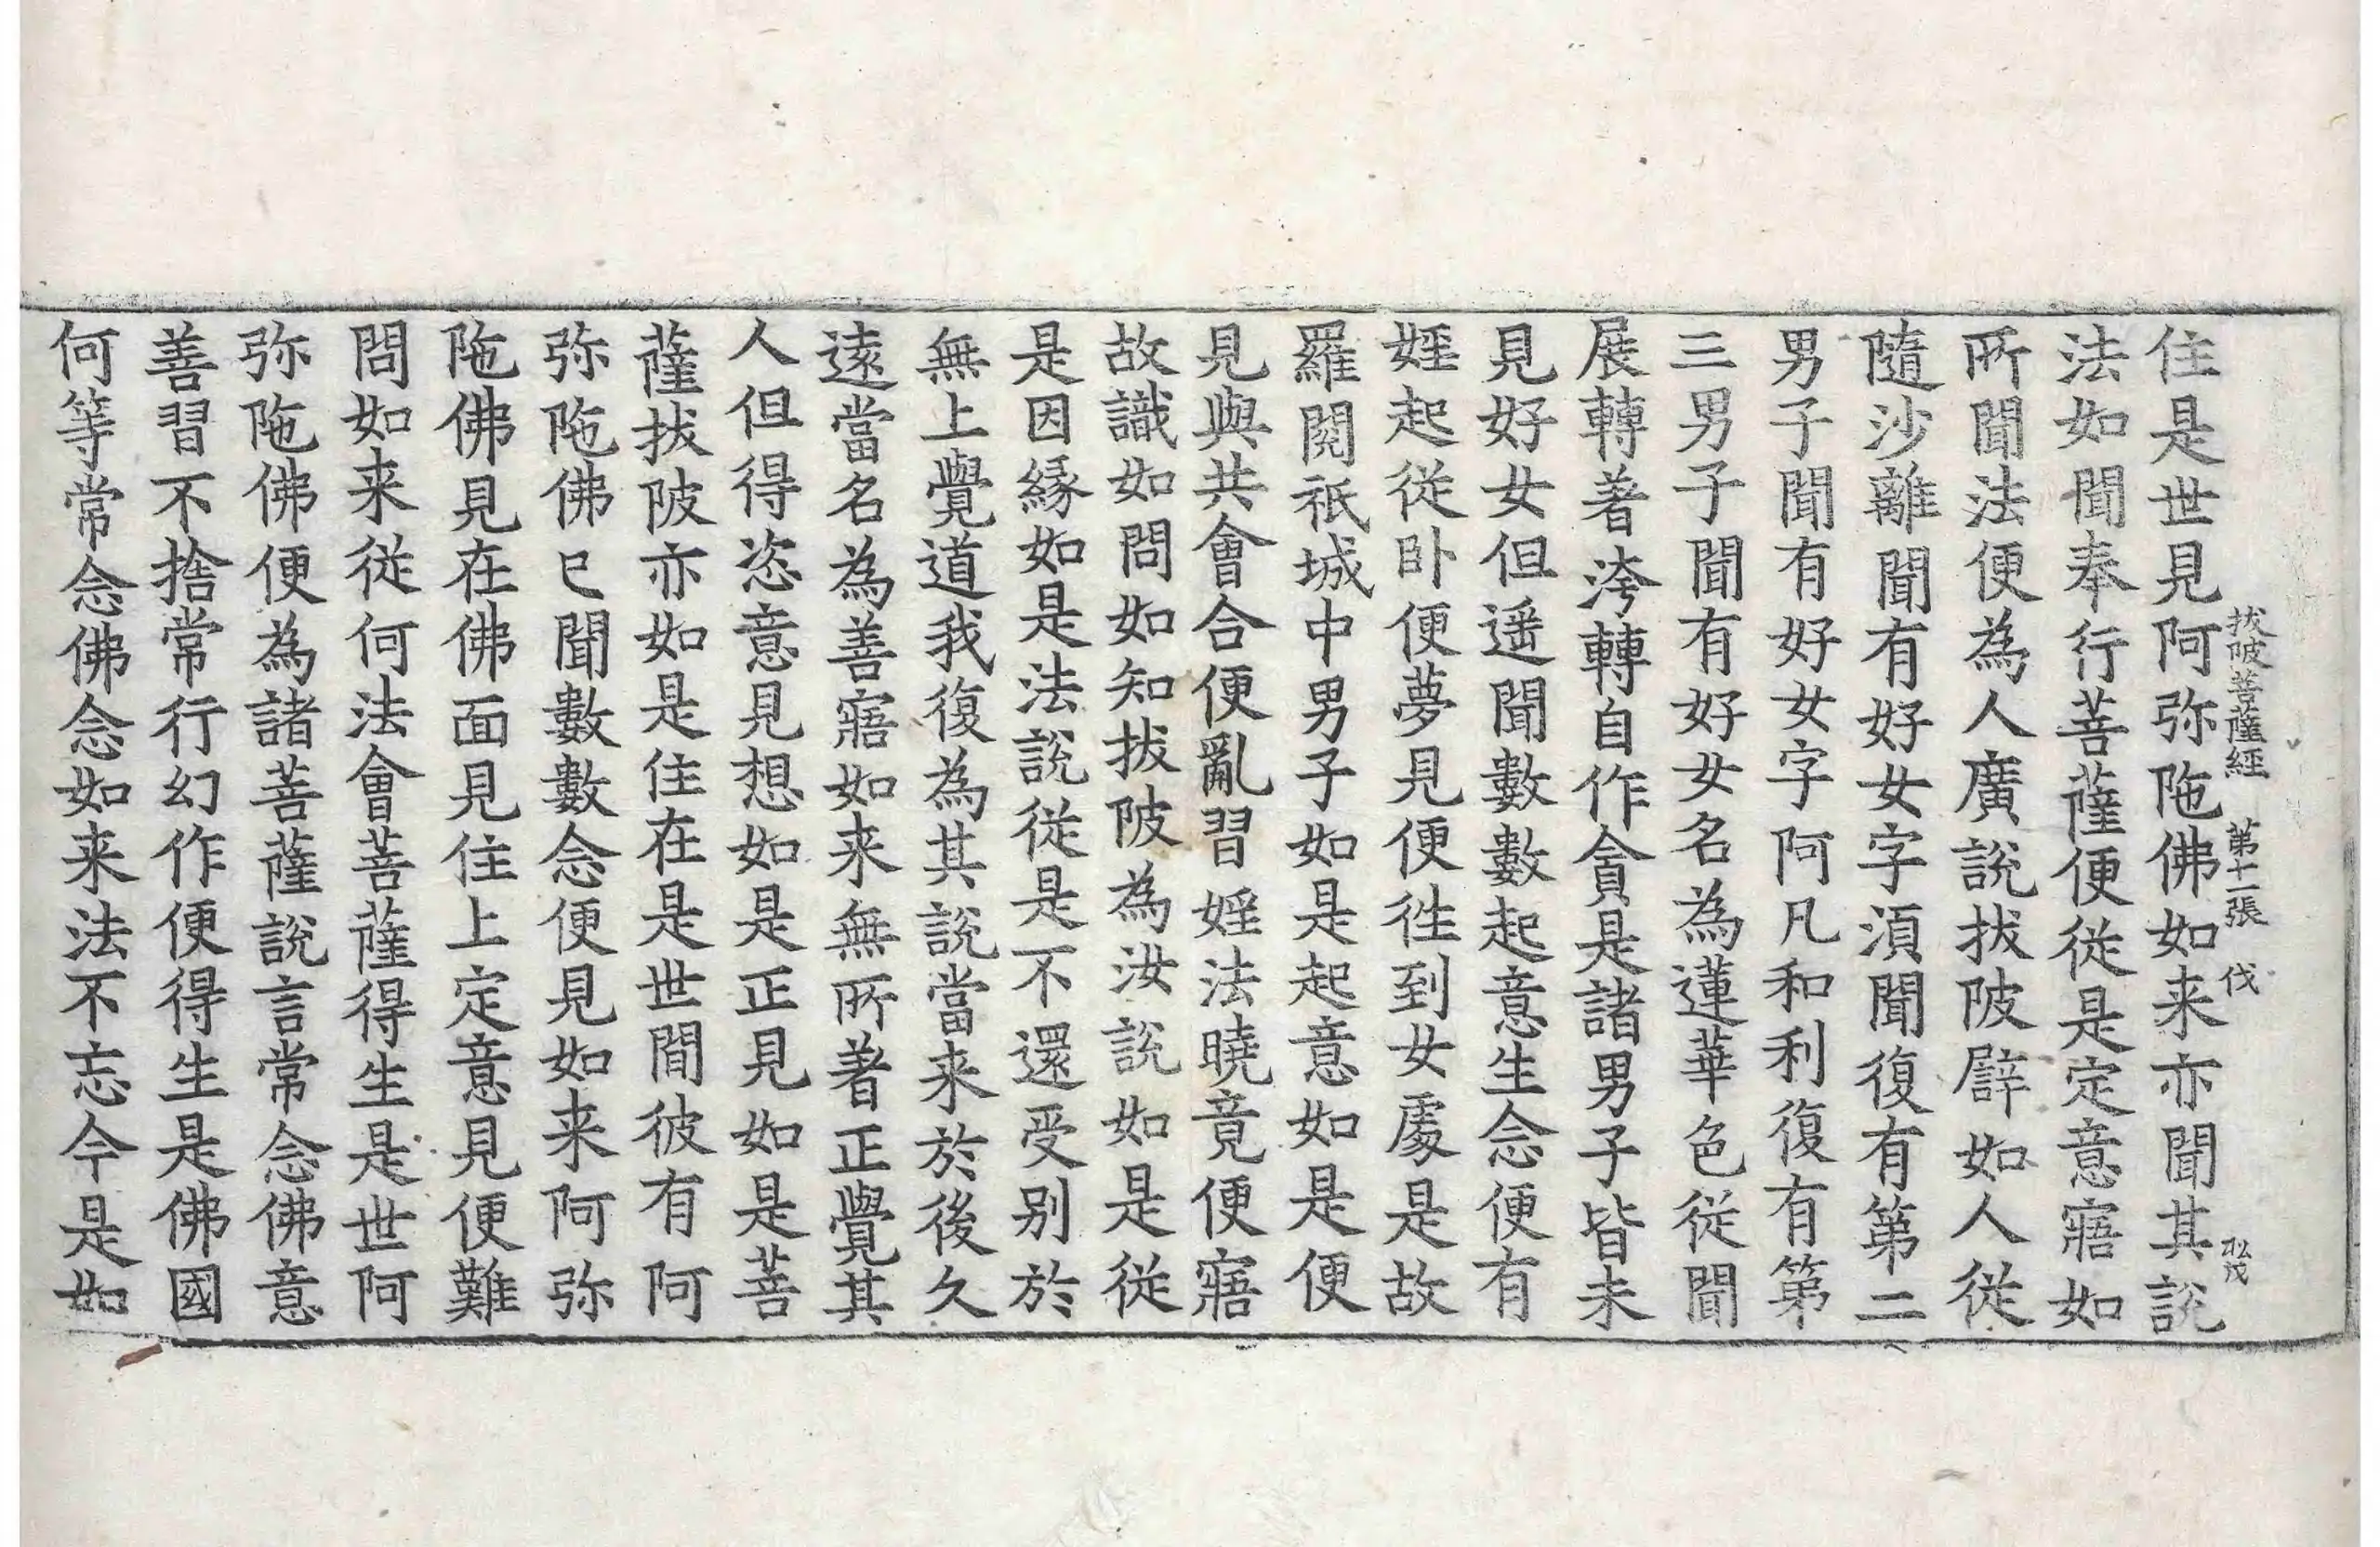 拔陂菩薩經 第十一張 伐
住是世見阿弥陁佛如来亦聞其說
法如聞奉行菩薩便從是定意寤如
所聞法便為人廣說拔陂譬如人從
隨沙離聞有好女字湏聞復有第二
男子聞有好女字阿凡和利復有第
三男子聞有好女名為蓮華色從聞
展轉著洿轉自作貪是諸男子皆未
見好女但遥聞數數起意生念便有
婬起從卧便夢見便徃到女處是故
羅閱祇城中男子如是起意如是便
見與共會合便亂習婬法曉竟便寤
故識如問如知拔陂為汝說如是從
是因緣如是法說從是不還受别於
無上覺道我復為其說當来於後久
遠當名為善寤如来無所著正覺其
人但得恣意見想如是正見如是菩
薩拔陂亦如是住在是世間彼有阿
弥陁佛已聞數數念便見如来阿弥
陁佛見在佛面見住上定意見便難
問如来從何法會菩薩得生是世阿
弥陁佛便為諸菩薩說言常念佛意
善習不捨常行幻作便得生是佛國
何等常念佛念如来法不忘今是如